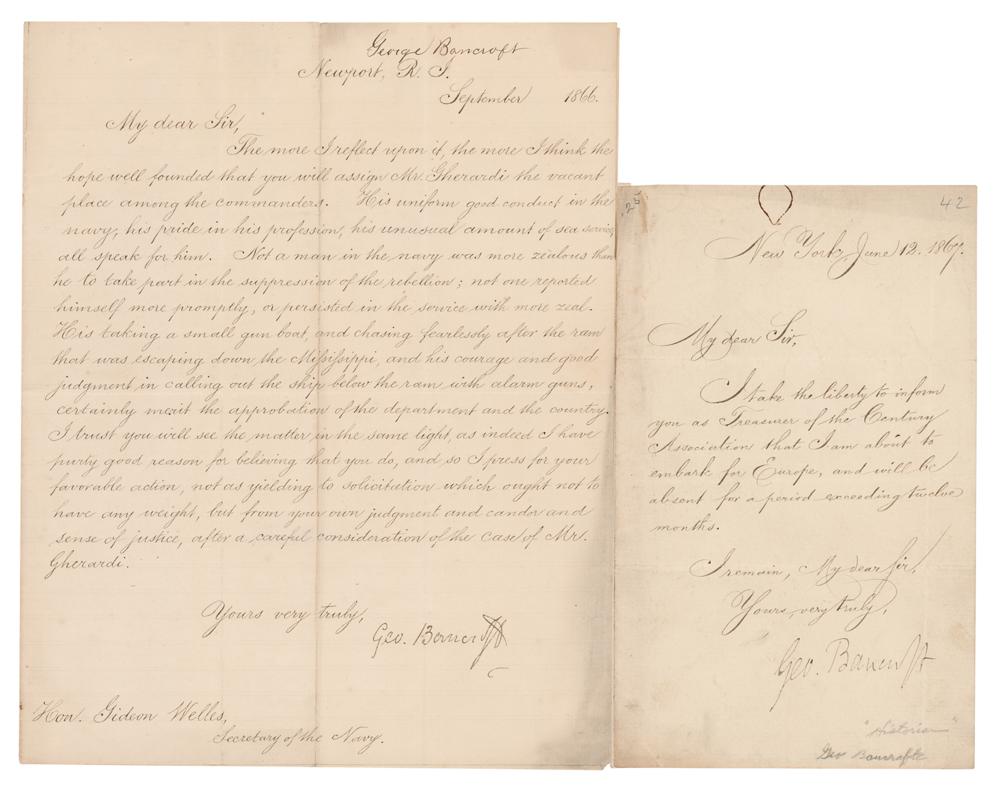 George Bancroft
Newport, R. I.
September 1866.
My dear Sir,
The more I reflect upon it, the more I think the
hope well founded that you will assign Mr. Gherardi the vacant
place among the commanders. His uniform good conduct in the
navy, his pride in his profession, his unusual amount of sea service,
all speak for him. Not a man in the navy was more zealous than
he to take part in the suppression of the rebellion; not one reported
himself more promptly, or persisted in the service with more zeal.
His taking a small gun boat, and chasing fearlessly after the ram
that was escaping down the Mississippi, and his courage and good
judgment in calling out the ship below the ram with alarm guns,
certainly merit the approbation of the department and the country.
I trust you will see the matter in the same light, as indeed I have
purty good reason for believing that you do, and so I press for your
favorable action, not as yielding to solicitation which ought not to
have any weight, but from your own judgment and candor and
sense of justice, after a careful consideration of the case of Mr.
Gherardi.
Yours very truly,
Geo. Bancroft
Hon. Gideon Welles,
Secretary of the Navy.
.25
42
New York, June 12. 1867.
My dear Sir,
I take the liberty to inform
you as Treasurer of the Century
Association that I am about to
embark for Europe, and will be
absent for a period exceeding twelve
months.
I remain, My dear Sir,
Yours very truly,
Geo. Bancroft
"Historian"
Geo Bancrofte